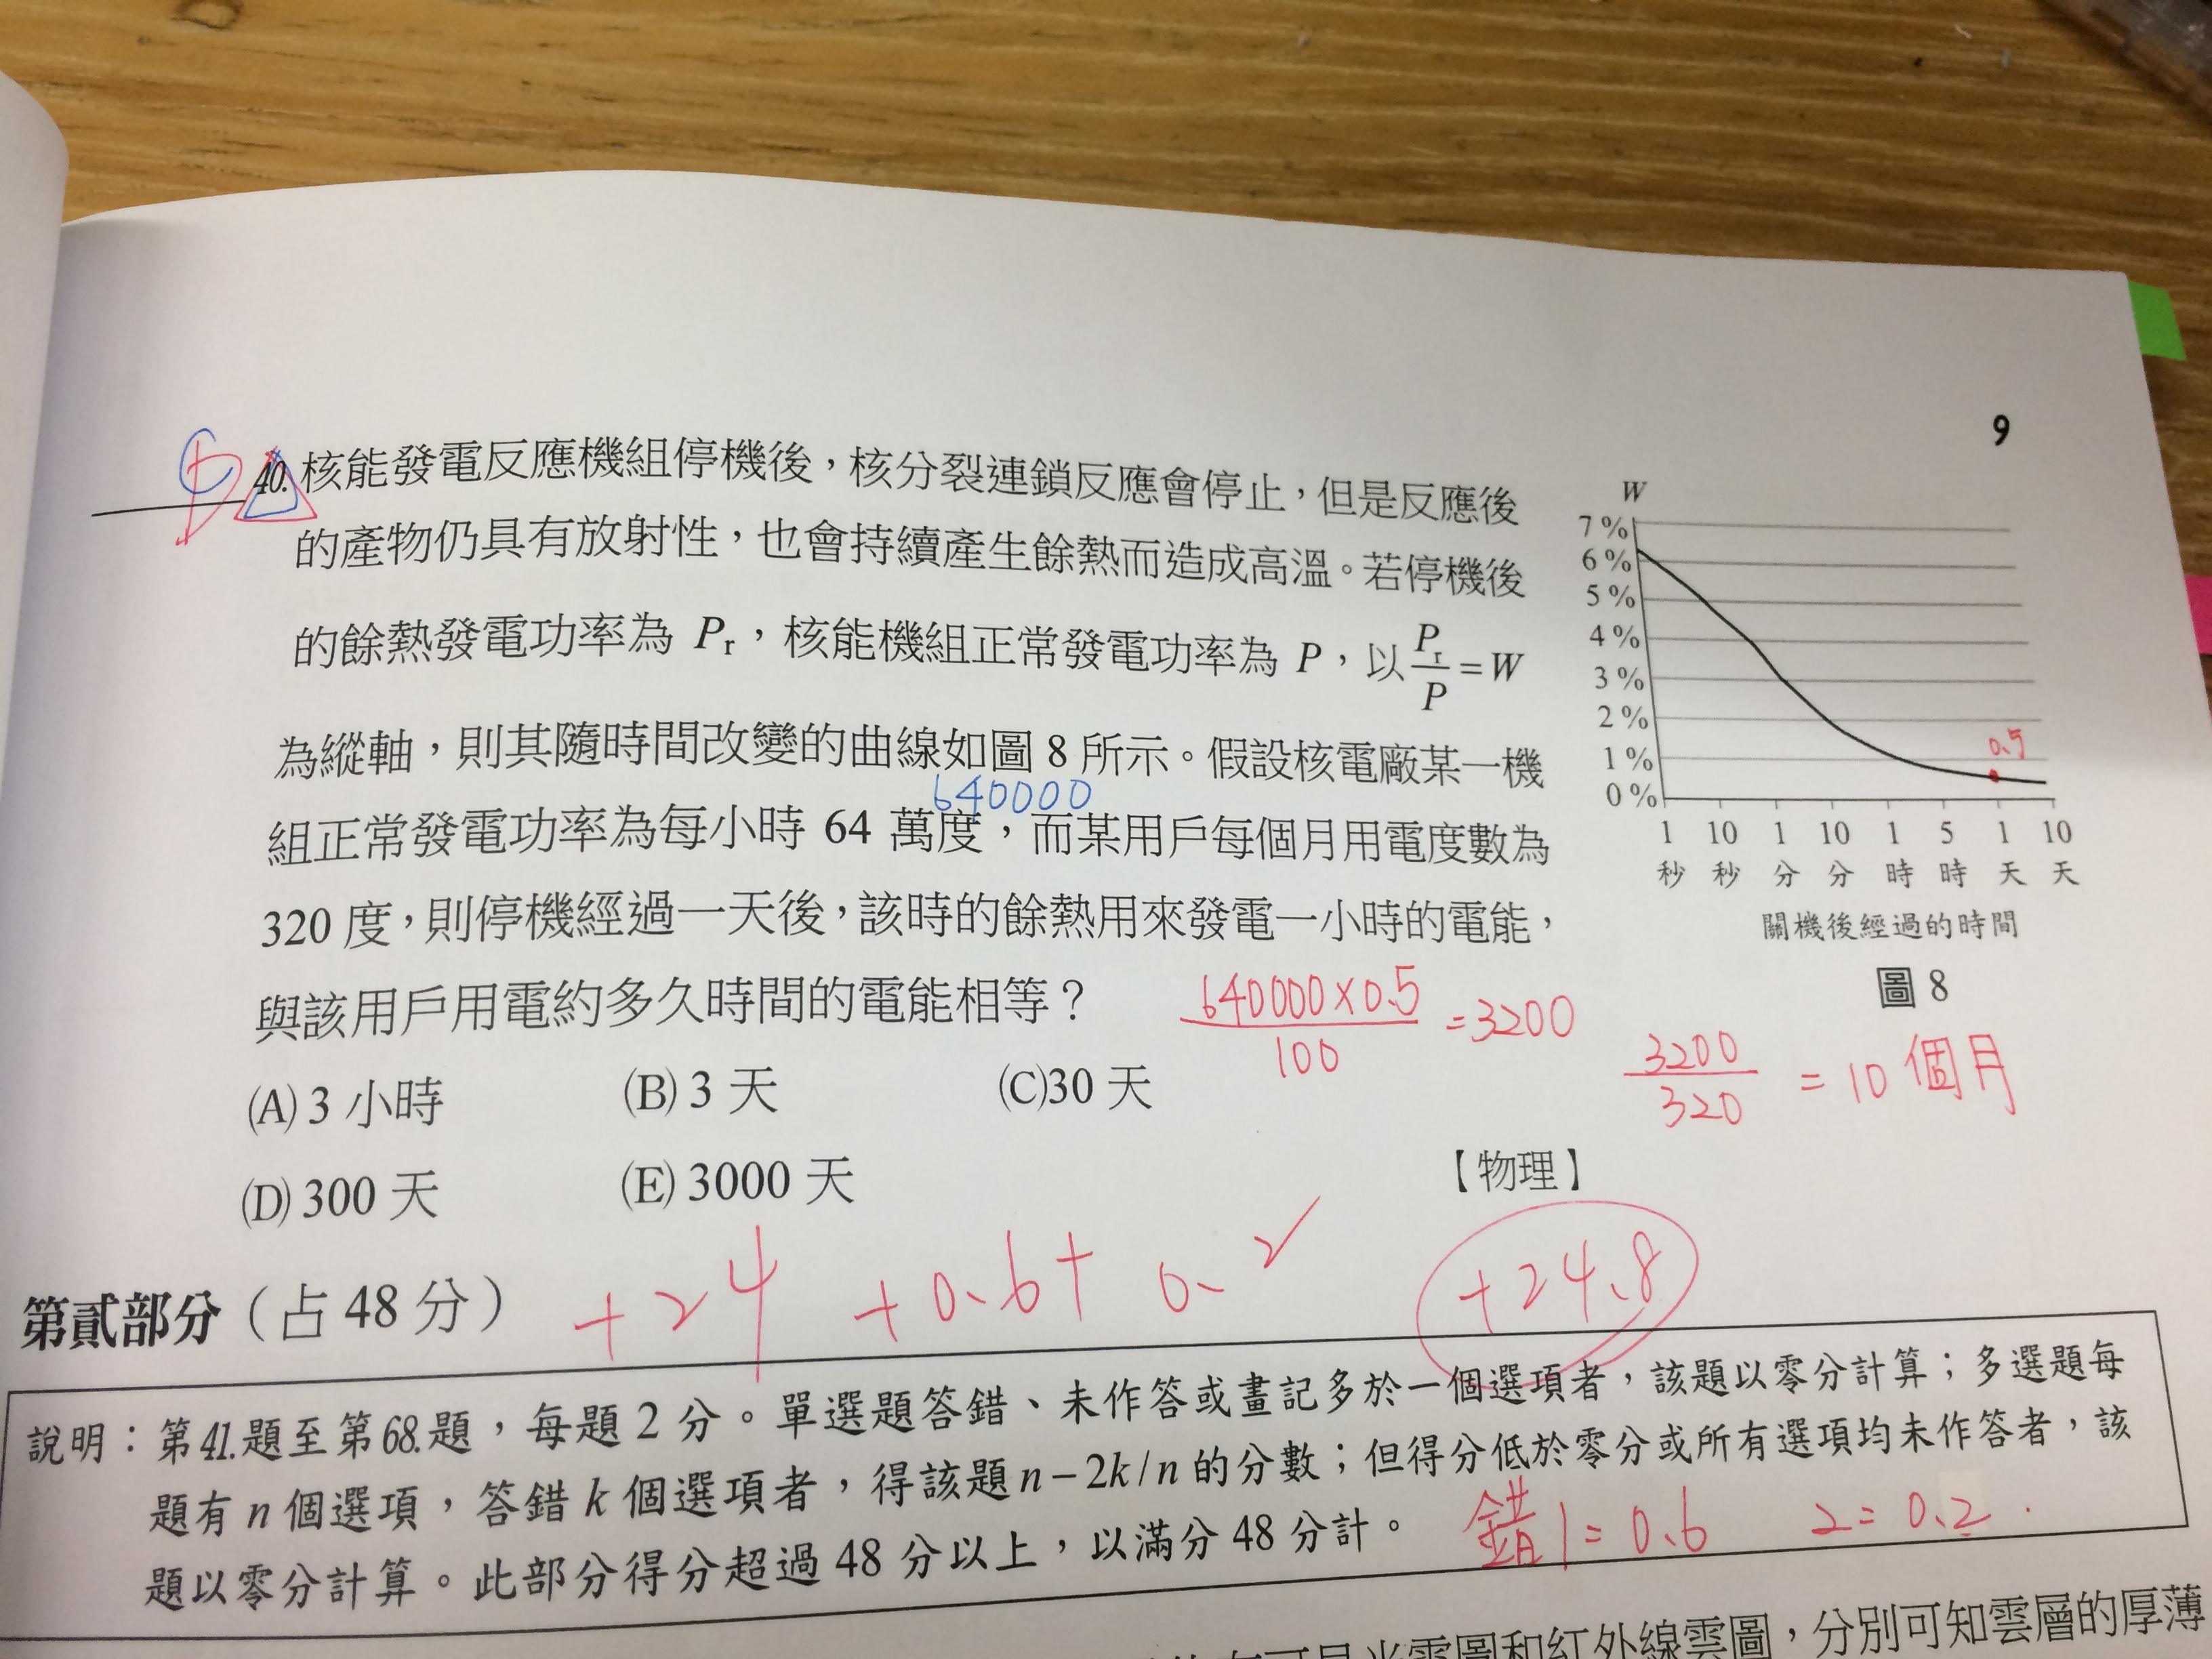 9
D 40. 核能發電反應機組停機後，核分裂連鎖反應會停止，但是反應後
的產物仍具有放射性，也會持續產生餘熱而造成高溫。若停機後
的餘熱發電功率為 Pr，核能機組正常發電功率為 P，以 Pr/P = W
為縱軸，則其隨時間改變的曲線如圖 8 所示。假設核電廠某一機
640000
組正常發電功率為每小時 64 萬度，而某用戶每個月用電度數為
320 度，則停機經過一天後，該時的餘熱用來發電一小時的電能，
與該用戶用電約多久時間的電能相等？
640000×0.5/100 = 3200
3200/320 = 10 個月
(A) 3 小時 (B) 3 天 (C)30 天
(D) 300 天 (E) 3000 天
【物理】
W
7 %
6 %
5 %
4 %
3 %
2 %
1 %
0 %
0.5
1 10 1 10 1 5 1 10
秒 秒 分 分 時 時 天 天
關機後經過的時間
圖 8
第貳部分（占 48 分）
+24 +0.6+ 0.2
+24.8
說明：第41.題至第68.題，每題 2 分。單選題答錯、未作答或畫記多於一個選項者，該題以零分計算；多選題每
題有 n 個選項，答錯 k 個選項者，得該題 n－2k/n 的分數；但得分低於零分或所有選項均未作答者，該
題以零分計算。此部分得分超過 48 分以上，以滿分 48 分計。
錯1=0.6 2=0.2
可見光雲圖和紅外線雲圖，分別可知雲層的厚薄